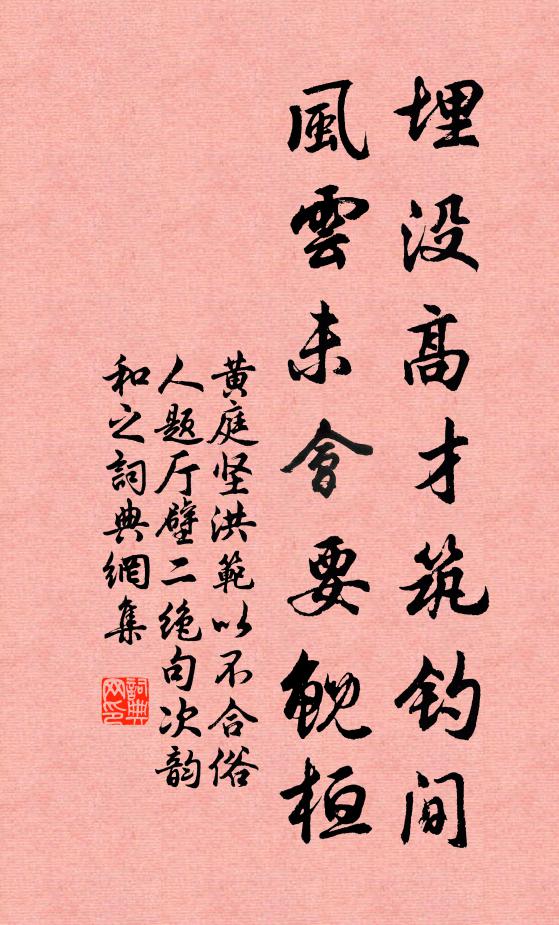 埋没高才筑钓间
風雲未會要鲵桓
黄庭坚洪範以不合俗
人题厅壁二绝句次韵
和之詞典網集
詞典
网印